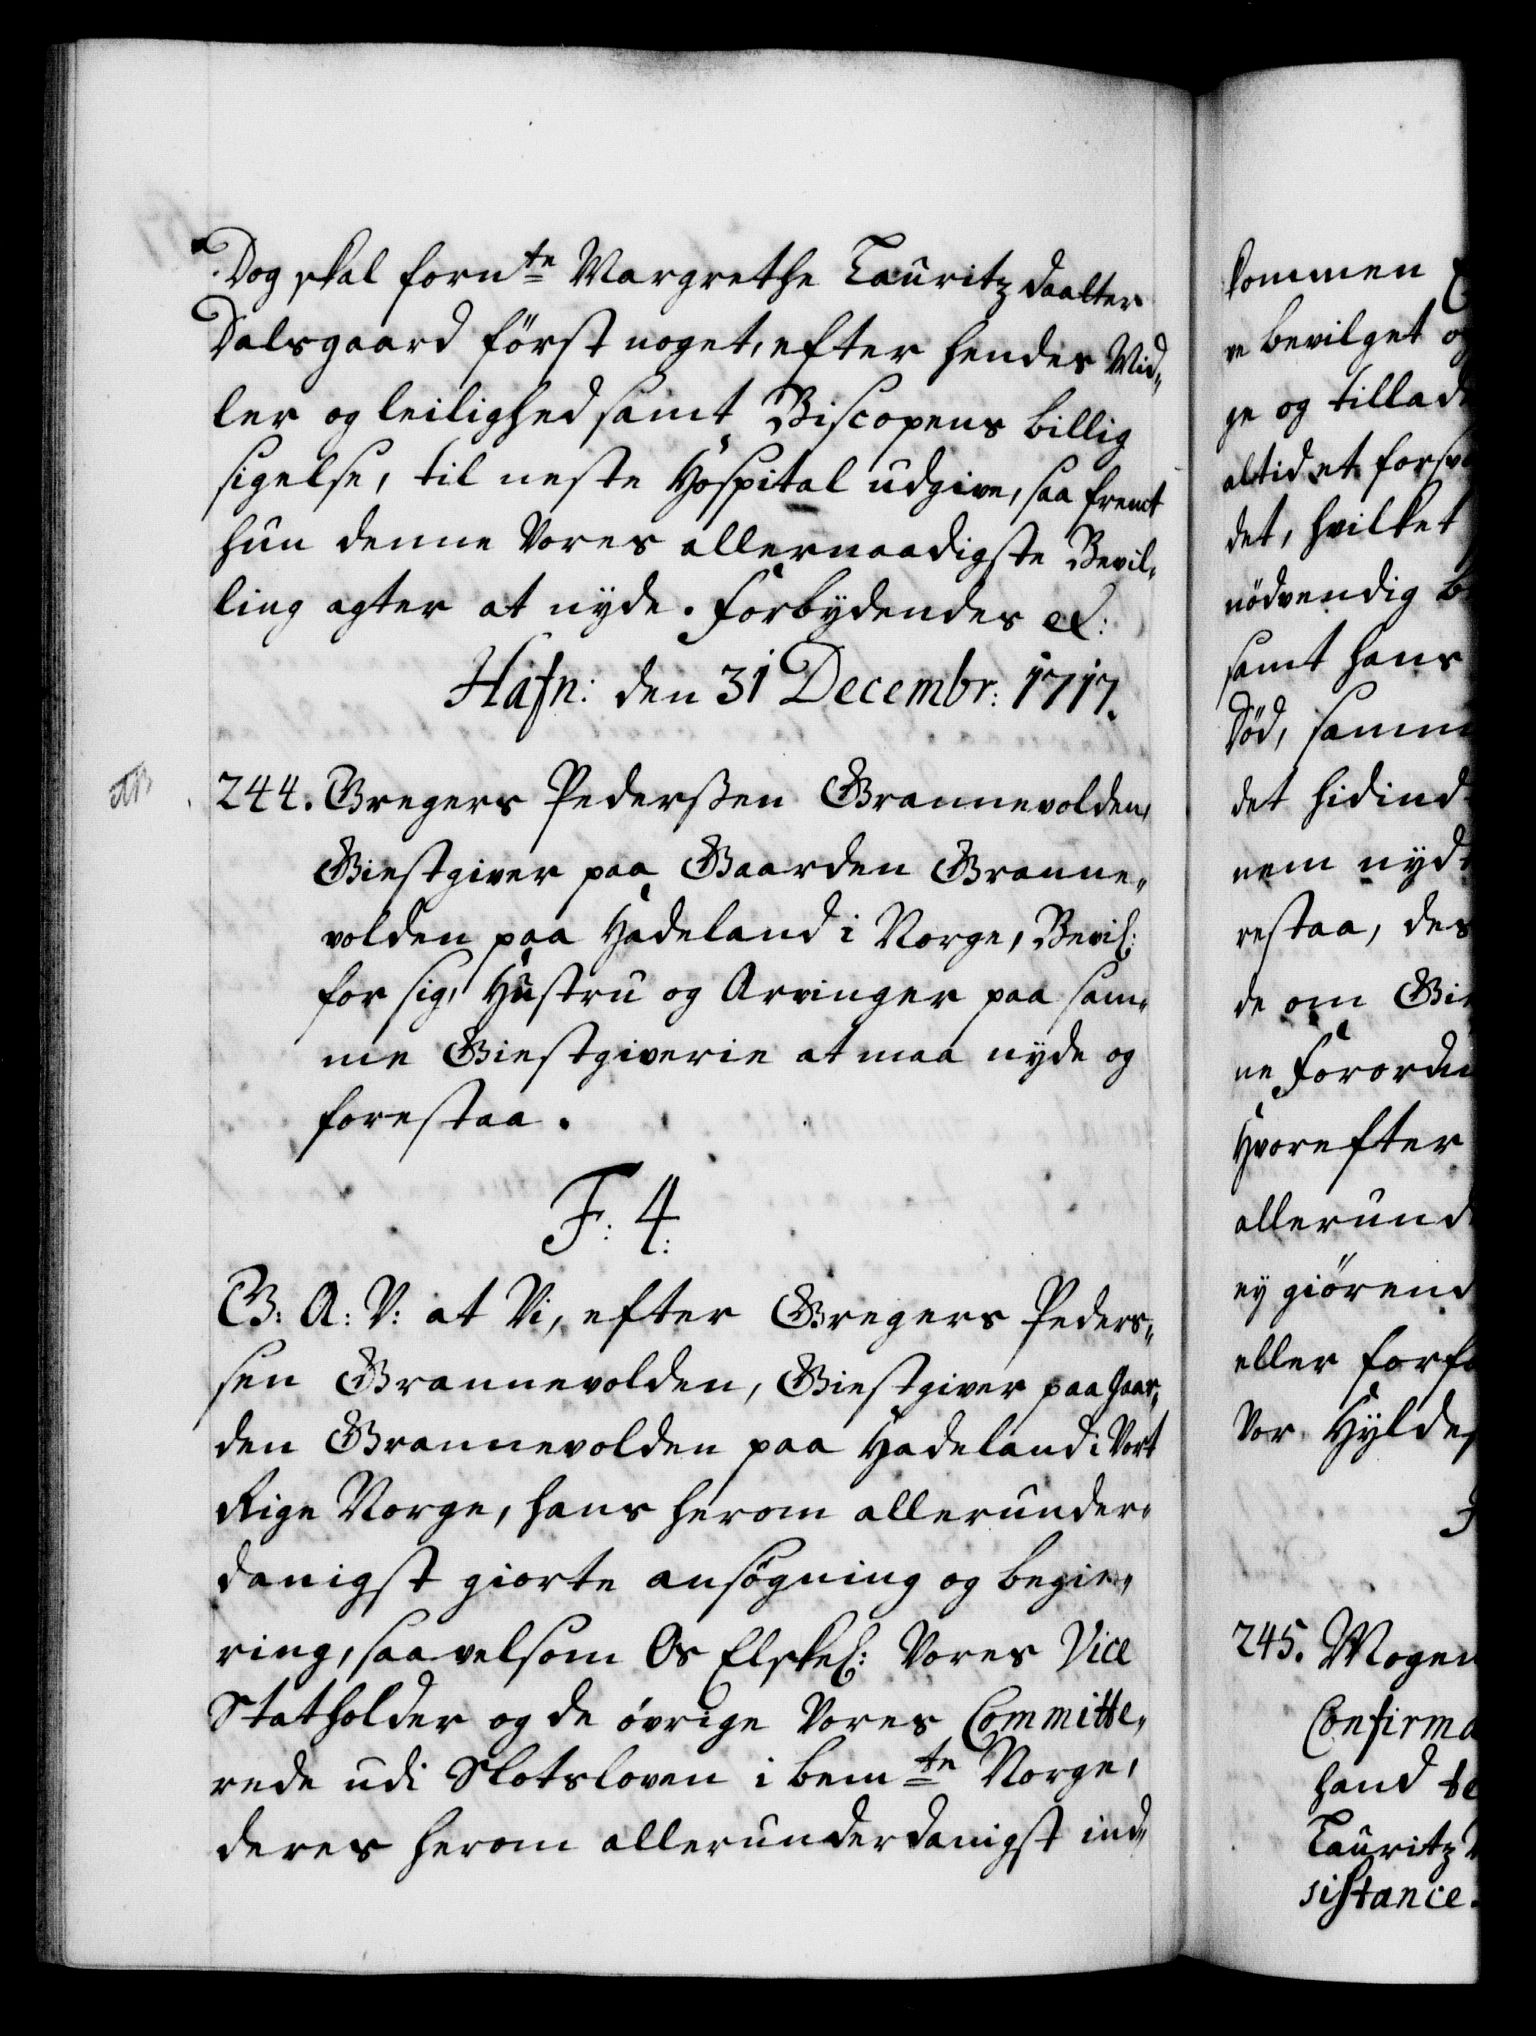 Dog skal fornte Margrethe Lauritzdaatter
Dalsgaard först noget, efter hendes Mid-
ler og leilighed samt Biscopens billig
sigelse, til neste Hospital udgive, saa fremt
hun denne Vores allernaadigste Bevil-
ling agter at nyde. Forbydendes etc:
Hafn: den 31 Decembr: 1717.
244. Gregers Pederssen Grannevolden,
Giestgiver paa Gaarden Granne-
volden paa Hadeland i Norge, Bevil:
for sig, Hustru og Arvinger paa sam-
me Giestgiverie at maa nyde og
forestaa.
F: 4:
G: A: V: at Vi, efter Gregers Peders-
sen Grannevolden, Giestgiver paa Gaar-
den Grannevolden paa Hadeland i Vort
Rige Norge, hans herom allerunder-
danigst giorte ansögning og begie-
ring, saavelsom Os Elskel: Vores Vice
Statholder og de övrige Vores Committe-
rede udi Slotsloven i bemte Norge,
deres herom allerunderdanigst ind-
kommen
ve bevilget og
ge og tillade
altid et forsv
det, hvilket
nödvendig b
samt hans
Död, samm
det hidind
nem nyde
restaa, des
de om Gie
ne Forordn
Hvorefter
allerund
ey giörend
eller forfa
Vor Hylde
245. Mogen
Confirma
hand be
Lauritz
sistance.